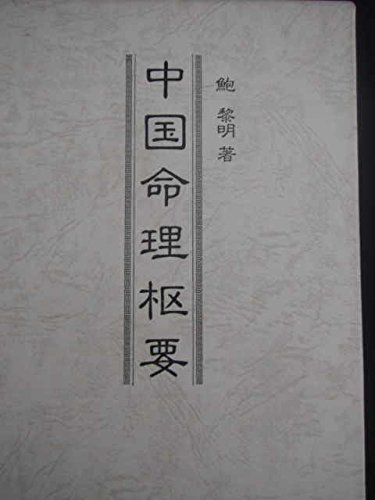 鮑 黎明 著
中国命理枢要